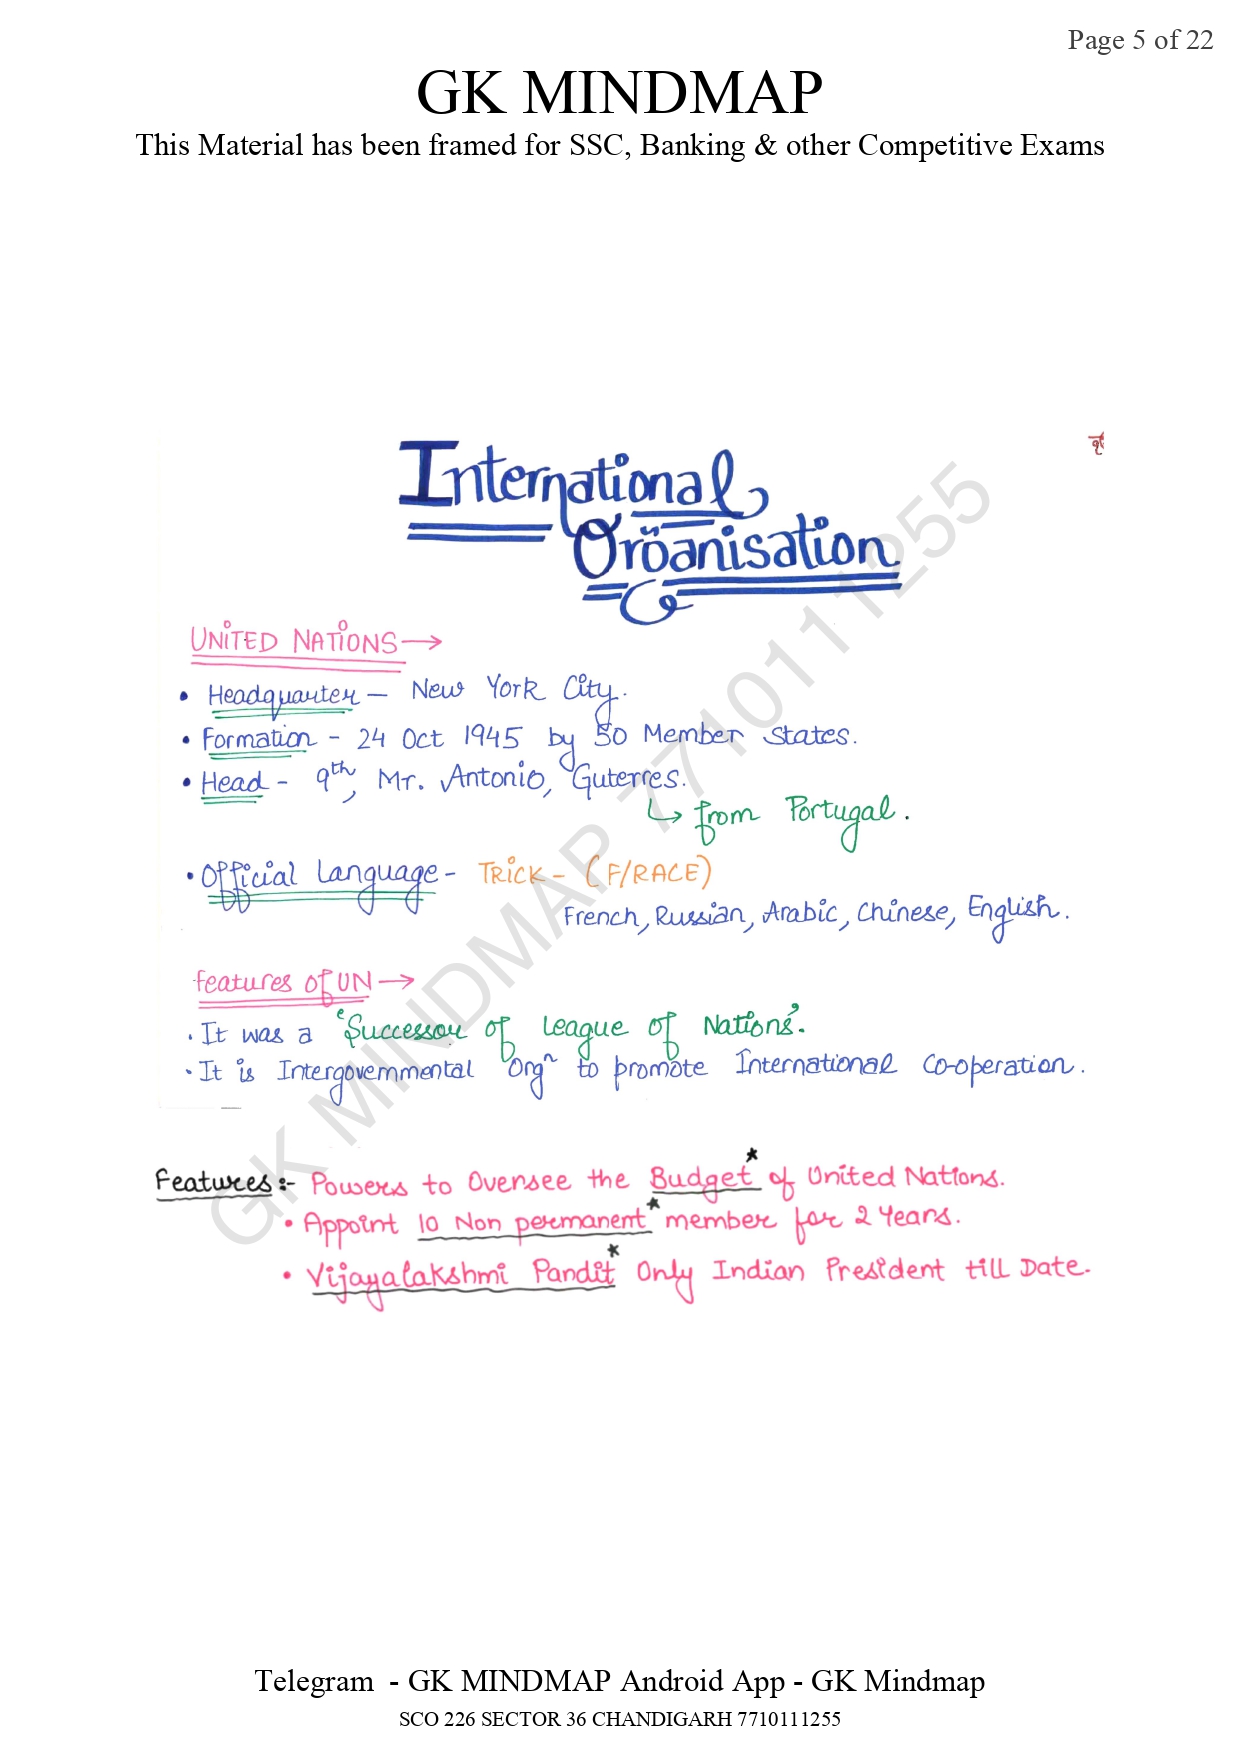 Page 5 of 22
GK MINDMAP
This Material has been framed for SSC, Banking & other Competitive Exams
International
Organisation
UNITED NATIONS →
• Headquarter – New York City.
• Formation - 24 Oct 1945 by 50 Member States.
• Head - 9th, Mr. Antonio, Guterres.
↳ from Portugal.
• Official Language - TRICK - (F/RACE)
French, Russian, Arabic, Chinese, English.
features of UN →
• It was a 'Successor of League of Nations'.
• It is Intergovernmental Orgn to promote International Co-operation.
Features:- Powers to Oversee the Budget* of United Nations.
• Appoint 10 Non permanent* member for 2 Years.
• Vijayalakshmi Pandit* Only Indian President till Date.
GK MINDMAP 7710111255
Telegram - GK MINDMAP Android App - GK Mindmap
SCO 226 SECTOR 36 CHANDIGARH 7710111255